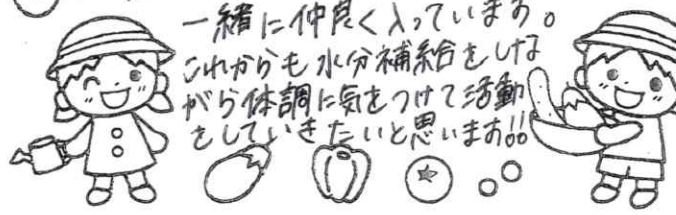 一緒に仲良く入っています。
これからも水分補給をしな
がら体調に気をつけて活動
をしていきたいと思います!!